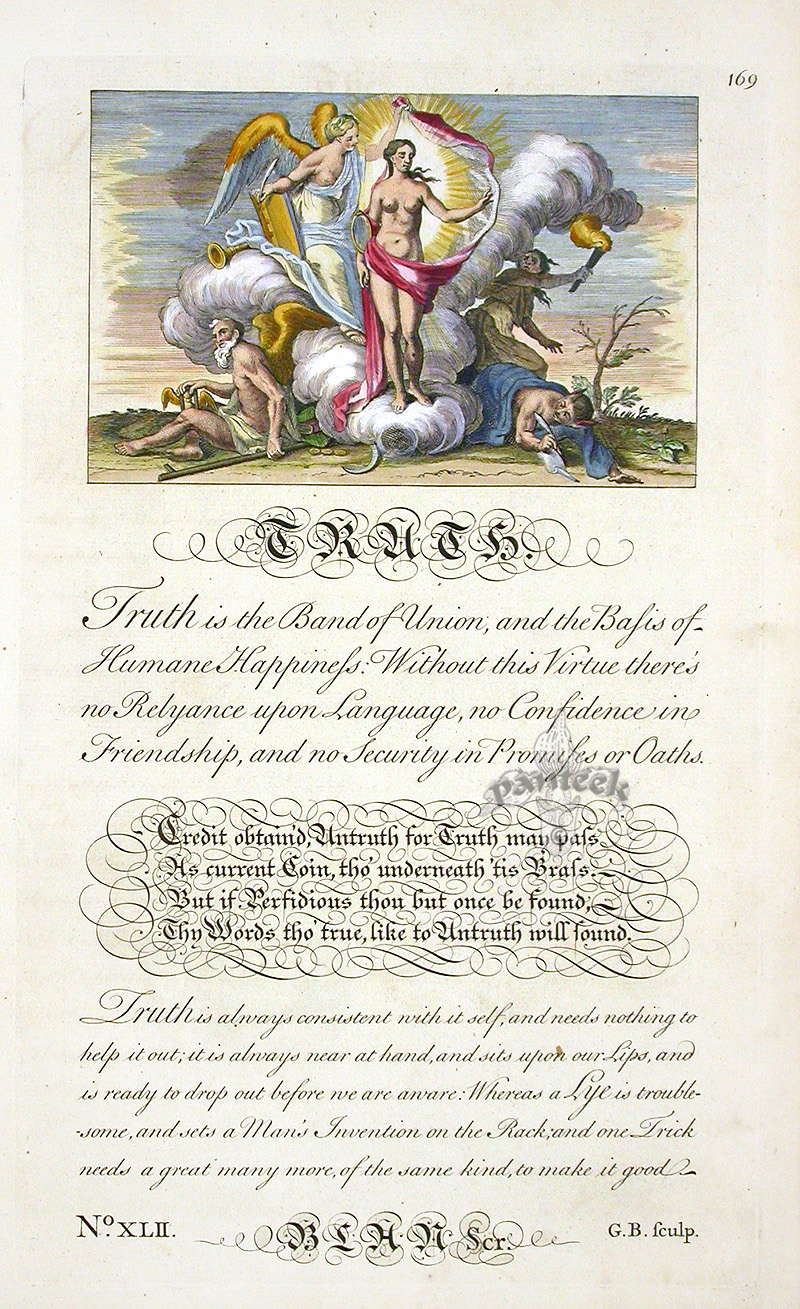 169
TRUTH.
Truth is the Band of Union, and the Baſis of
Humane Happineſs: Without this Virtue there's
no Relyance upon Language, no Confidence in
Friendship, and no Security in Promiſes or Oaths.
panteek
Credit obtain'd, Untruth for Truth may paſs
As current Coin, tho' underneath 'tis Braſs.
But if Perfidious thou but once be found,
Thy Words tho' true, like to Untruth will ſound.
Truth is always consistent with it self, and needs nothing to
help it out; it is always near at hand, and sits upon our Lips, and
is ready to drop out before we are aware: Whereas a Lye is trouble-
-some, and sets a Man's Invention on the Rack; and one Trick
needs a great many more, of the same kind, to make it good
No. XLII. BLAN Scr. G.B. ſculp.